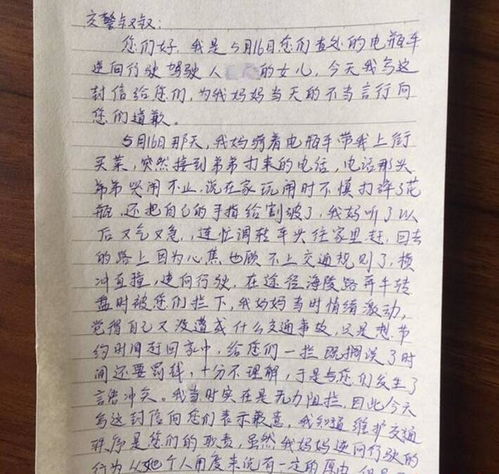 交警叔叔:
您们好,我是5月16日您们查处的电瓶车
逆向行驶驾驶人的女儿,今天我写这
封信给您们,为我妈妈当天的不当言行向
您们道歉。
5月16日那天,我妈骑着电瓶车带我上街
买菜,突然接到弟弟打来的电话,电话那头
弟弟哭闹不止,说在家玩闹时不慎打碎了花
瓶,还把自己的手指给割破了,我妈听了以
后又气又急,连忙调转车头往家里赶,回去
的路上因为心焦也顾不上交通规则了,横
冲直撞,逆向行驶,在途径海陵路弄车转
盘时被您们拦下,我妈妈当时情绪激动,
觉得自己又没造成什么交通事故,只是想节
约时间赶回家中,给您们一拦既搁误了时
间还要罚款,十分不理解,于是与您们发生了
言语冲突。我当时实在是无力阻拦,因此今天
写这封信向您们表示歉意,我知道维护交通
秩序是您们的职责,虽然我妈妈逆向行驶的
行为从她个人角度来说有一定的原由,但是